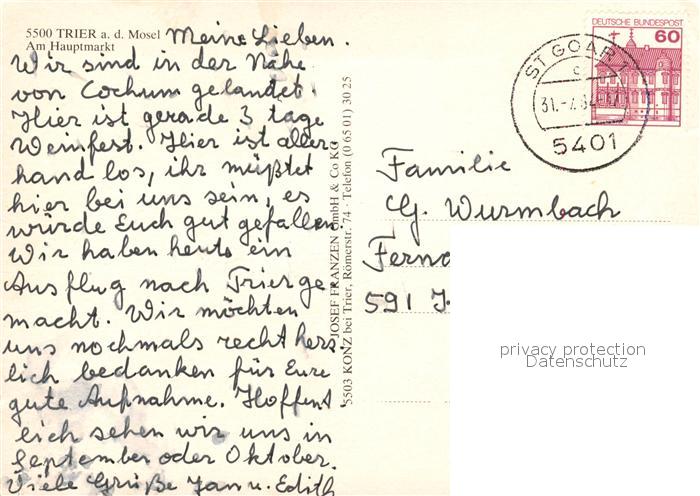 5500 TRIER a. d. Mosel
Am Hauptmarkt
Meine Lieben.
Wir sind in der Nähe
von Cochum gelandet.
Hier ist gerade 3 tage
Weinfest. Hier ist aller
hand los, ihr müßtet
hier bei uns sein, es
würde Euch gut gefallen
Wir haben heute ein
Ausflug nach Trier ge
macht. Wir möchten
uns nochmals recht herz
lich bedanken für Eure
gute Aufnahme. Hoffent
lich sehen wir uns in
September oder Oktober.
Viele Grüße Jan u. Edith
JOSEF FRANZEN GmbH & Co KG
5503 KONZ bei Trier, Römerstr. 74 · Telefon (0 65 01) 30 25
DEUTSCHE BUNDESPOST
60
ST GOAR 1
c
5401
Familie
G. Wurmbach
591
privacy protection
Datenschutz